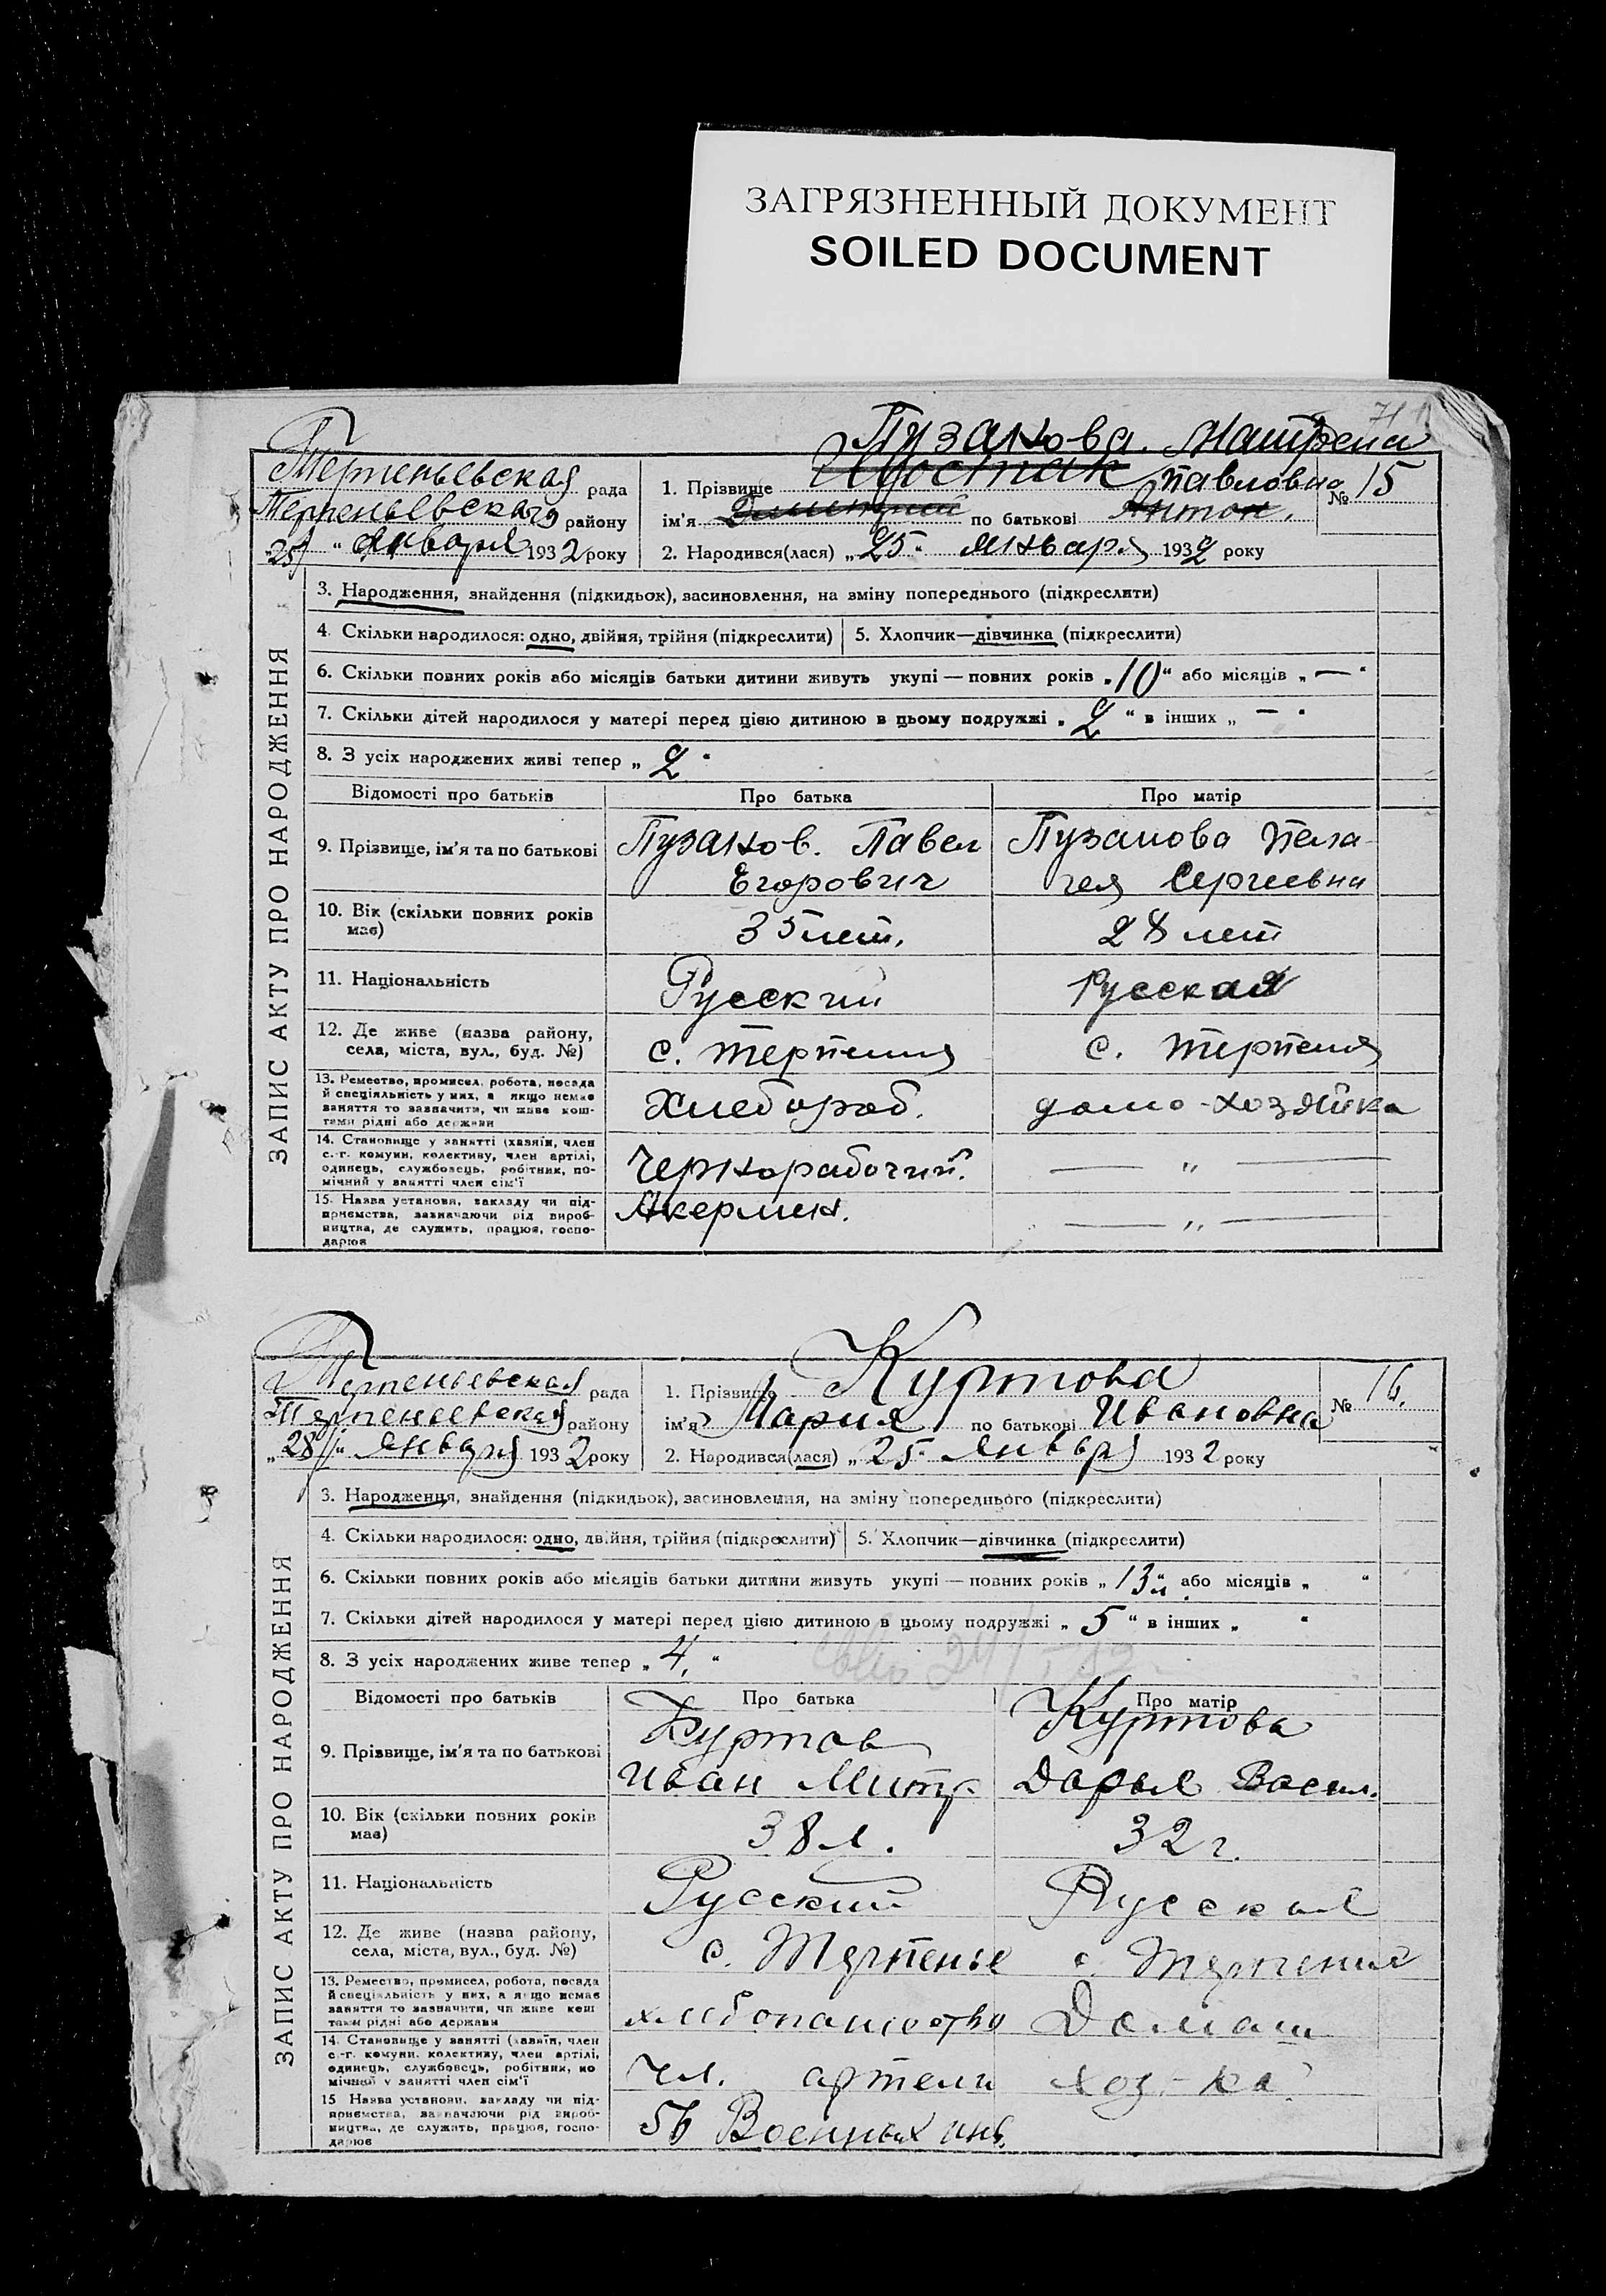 ЗАГРЯЗНЕННЫЙ ДОКУМЕНТ
SOILED DOCUMENT
71
Пузанова. Матрена
Терпеньевская рада
Терпеньевского району
"25" Января 1932 року
1. Прізвище Шостак Павловна
ім'я Дмитрий по батькові Антон.
№ 15
2. Народився(лася) „25" января 1932 року
ЗАПИС АКТУ ПРО НАРОДЖЕННЯ
3. Народження, знайдення (підкидьок), засиновлення, на зміну попереднього (підкреслити)
4. Скільки народилося: одно, двійня, трійня (підкреслити)
5. Хлопчик—дівчинка (підкреслити)
6. Скільки повних років або місяців батьки дитини живуть укупі — повних років „10" або місяців „—"
7. Скільки дітей народилося у матері перед цією дитиною в цьому подружжі „2" в інших „—"
8. З усіх народжених живі тепер „2"
Відомості про батьків Про батька Про матір
9. Прізвище, ім'я та по батькові
Пузанов. Павел
Егорович
Пузанова Пела-
гея Сергеевна
10. Вік (скільки повних років
має)
35 лет. 28 лет
11. Національність Русский Русская
12. Де живе (назва району,
села, міста, вул., буд. №)
с. Терпения с. Терпения
13. Ремество, промисел, робота, посада
й спеціяльність у них, а якщо немає
заняття то зазначити, чи живе кош-
тами рідні або держави
Хлебороб. домо-хозяйка
14. Становище у занятті (хазяїн, член
с.-г. комуни, колективу, член артілі,
одинець, службовець, робітник, по-
мічний у занятті член сім'ї
Чернорабочий. — „ —
15. Назва установи, закладу чи під-
приємства, зазначаючи рід вироб-
ництва, де служить, працює, госпо-
дарює
Акермен. — „ —
Терпеньевская рада
Терпеньевская району
„28" января 1932 року
1. Прізвище Куртова
ім'я Мария по батькові Ивановна
№ 16.
2. Народився(лася) „25" январ 1932 року
ЗАПИС АКТУ ПРО НАРОДЖЕННЯ
3. Народження, знайдення (підкидьок), засиновлення, на зміну попереднього (підкреслити)
4. Скільки народилося: одно, двійня, трійня (підкреслити)
5. Хлопчик—дівчинка (підкреслити)
6. Скільки повних років або місяців батьки дитини живуть укупі — повних років „13" або місяців „ "
7. Скільки дітей народилося у матері перед цією дитиною в цьому подружжі „5" в інших „ "
8. З усіх народжених живе тепер „4."
Відомості про батьків Про батька Про матір
9. Прізвище, ім'я та по батькові
Куртов
Иван Митр.
Куртова
Дарья Васил.
10. Вік (скільки повних років
має)
38 л. 32 г.
11. Національність Русский Русская
12. Де живе (назва району,
села, міста, вул., буд. №)
с. Терпенье с. Терпения
13. Ремество, промисел, робота, посада
й спеціяльність у них, а якщо немає
заняття то зазначити, чи живе кош
тами рідні або держави
хлебопашество Домаш
14. Становище у занятті (хазяїн, член
с.-г. комуни, колективу, член артілі,
одинець, службовець, робітник, по
мічний у занятті член сім'ї
чл. артели хоз-ка
15 Назва установи, закладу чи під-
приємства, зазначаючи рід вироб-
ництва, де служить, працює, госпо-
дарює
Военных инв.